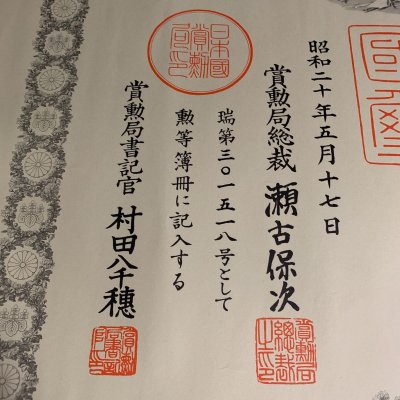 昭和二十年五月十七日
賞勲局総裁 瀬古保次
瑞第三〇一五一八号として
勲等簿冊に記入する
賞勲局書記官 村田八千穂
日本國
賞勲
局印
賞勲局
總裁
之印